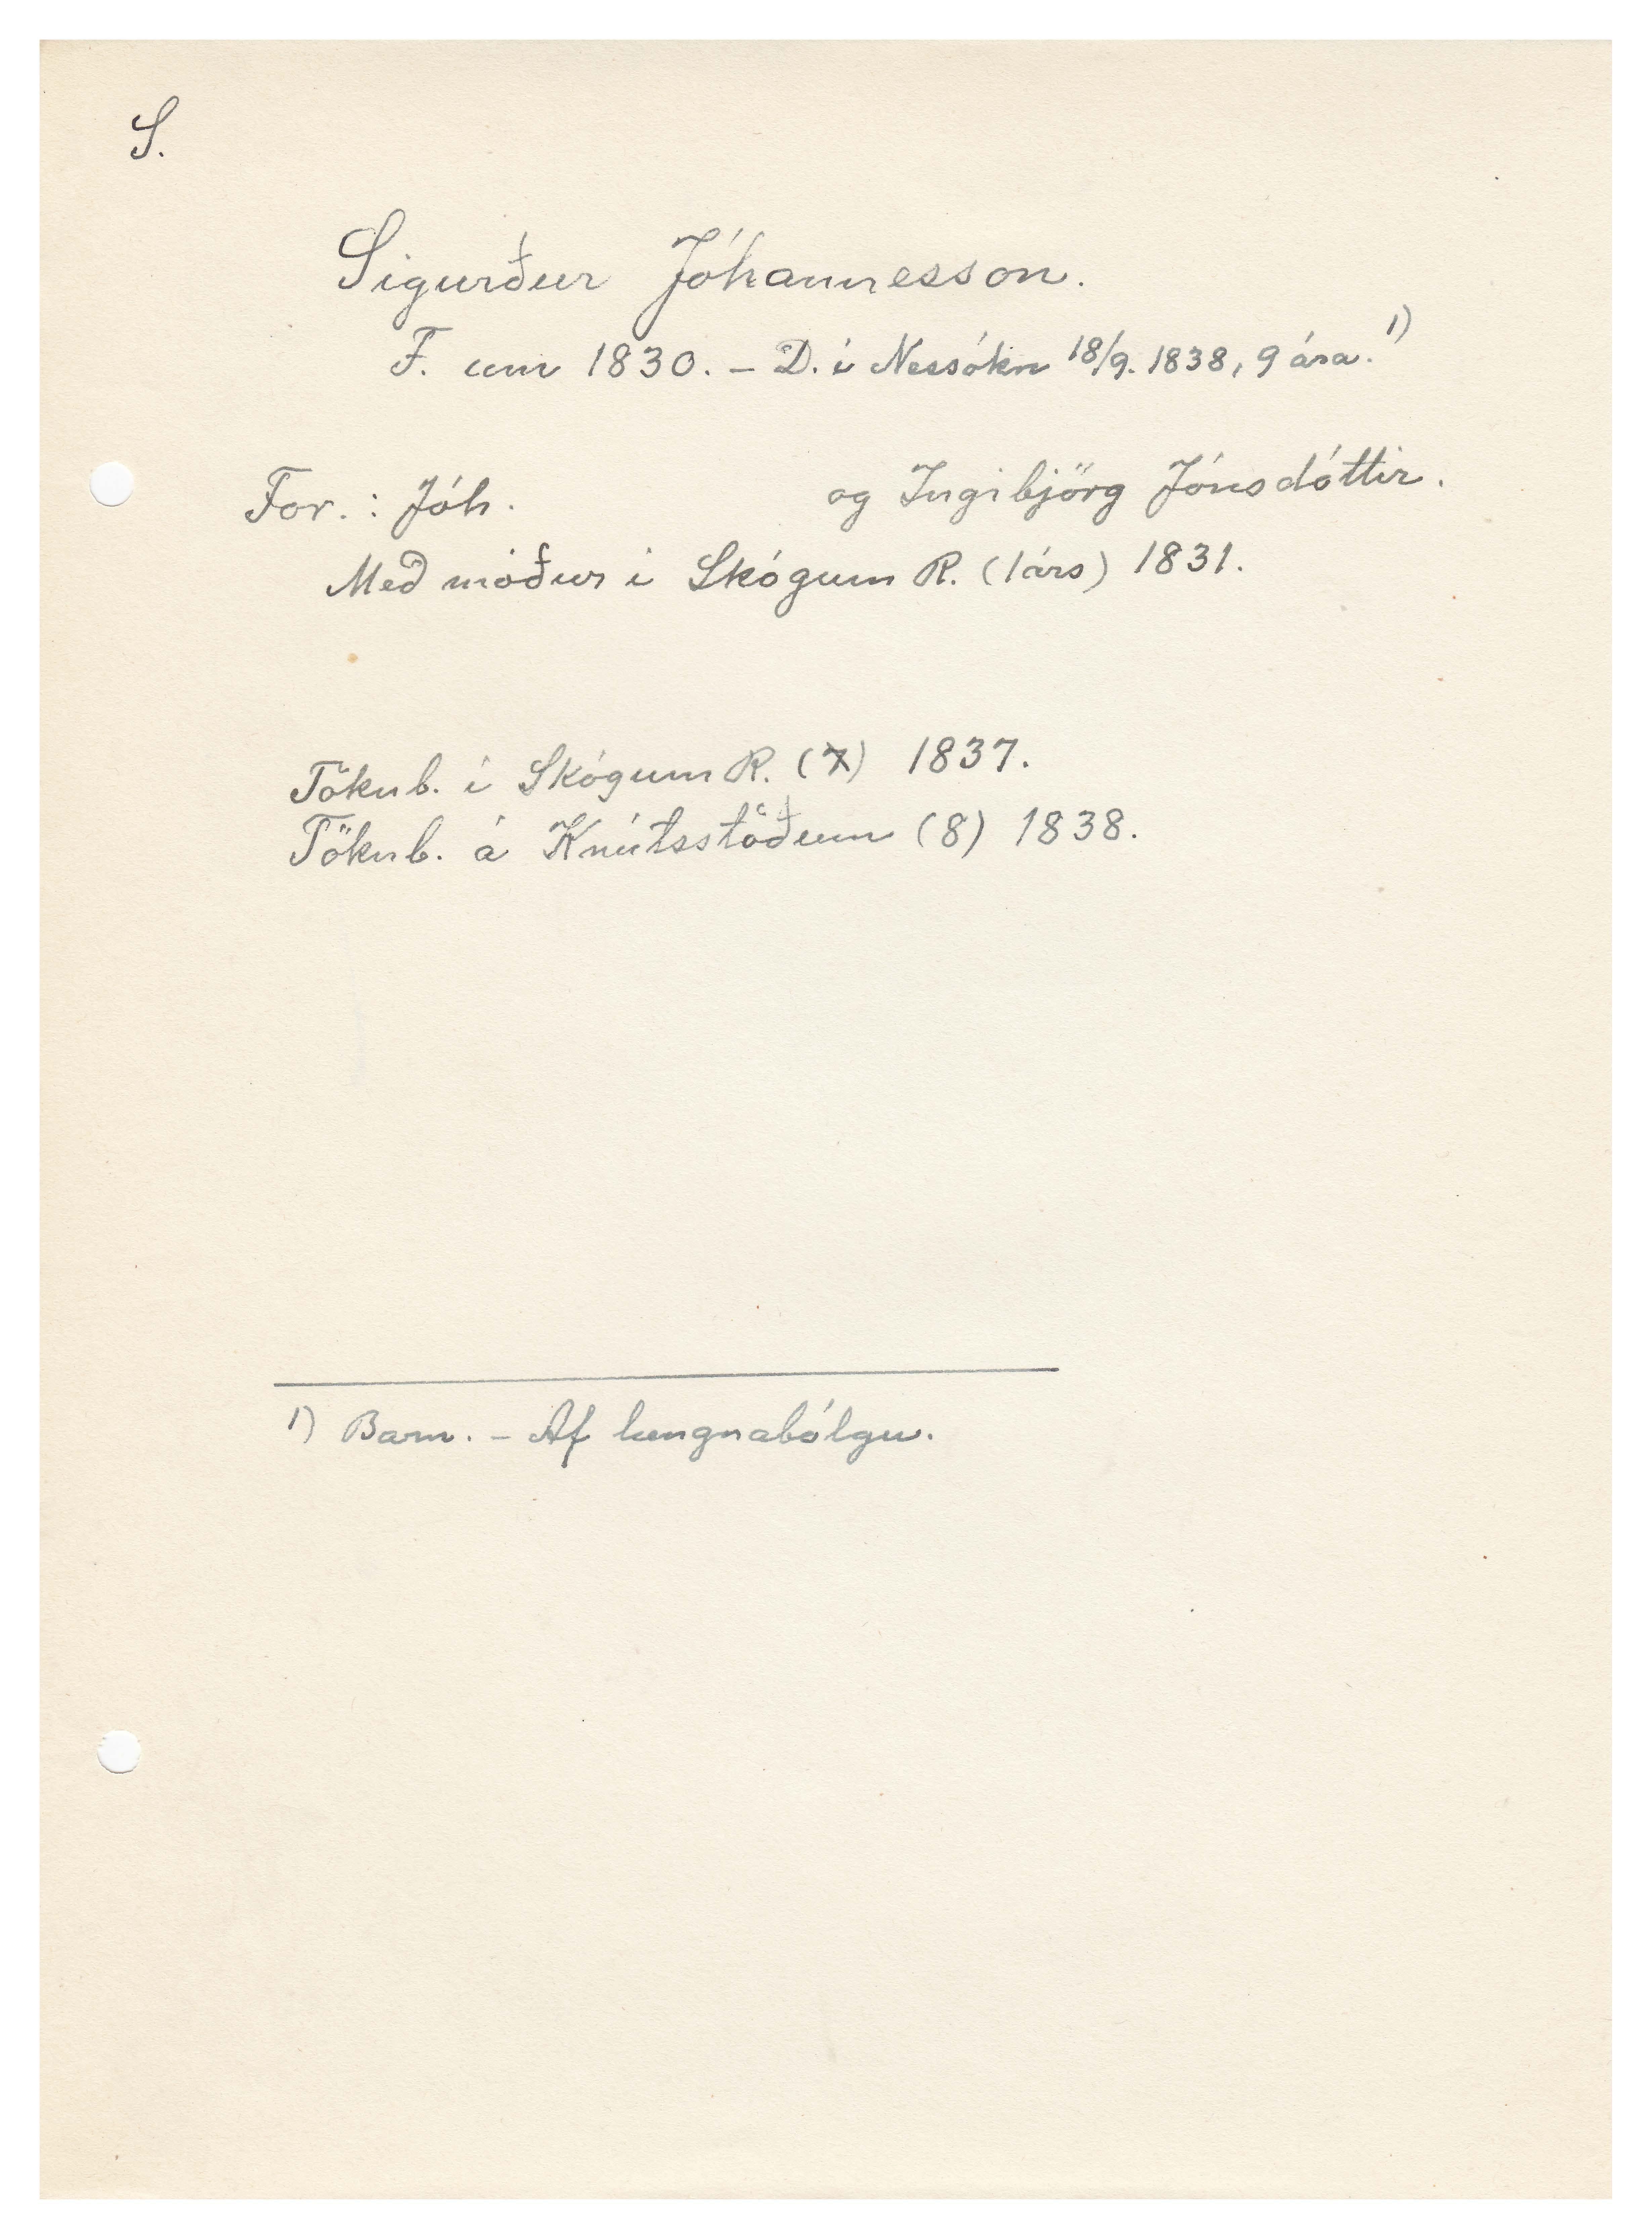 S.
Sigurður Jóhannesson.
F. um 1830. – D. í Nessókn 18/9. 1838, 9 ára. 1)
For.: Jóh. og Ingibjörg Jónsdóttir.
Með móður í Skógum R. (1árs) 1831.
Tökub. í Skógum R. (7) 1837.
Tökub. á Knútsstöðum (8) 1838.
1) Barn. – Af lungnabólgu.